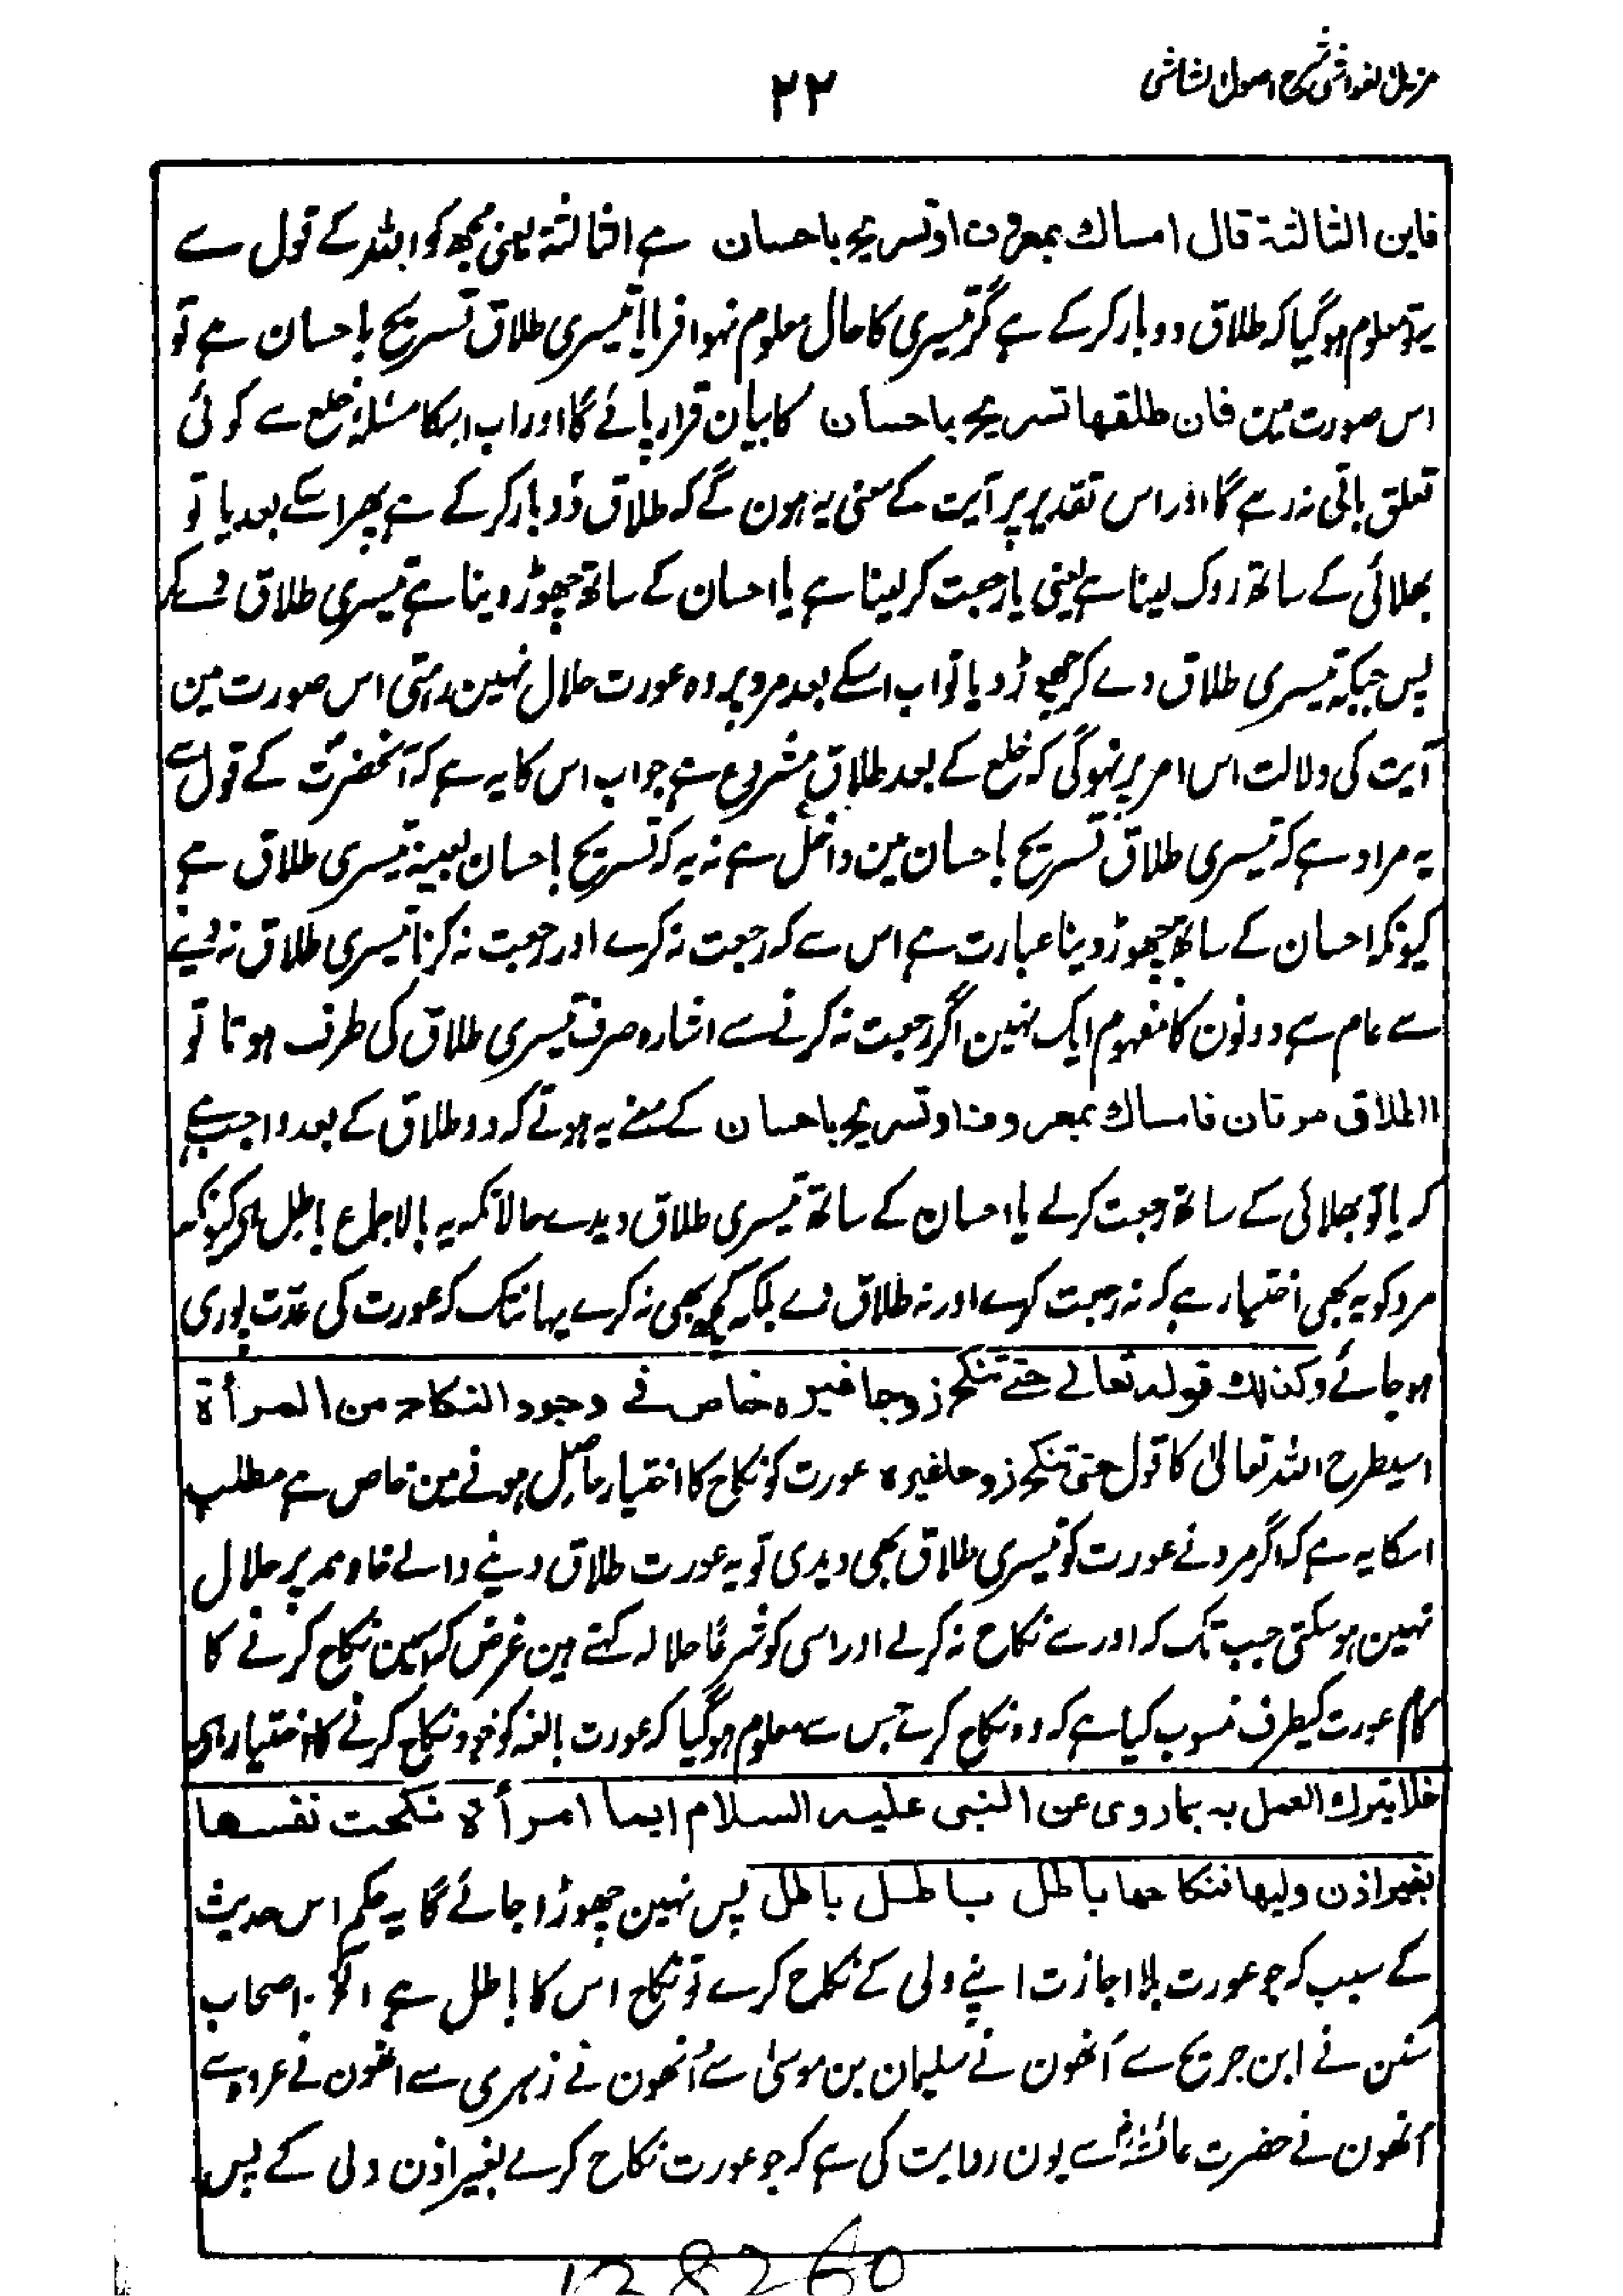 مزیل الغواشی شرح اصول الشاشی
۲۲
فاین الثالثۃ قال امساك بمعروف او تسریح باحسان ہے الثالثۃ یعنی مجھ کو اللہ کے قول سے
یہ تو معلوم ہوگیا کہ طلاق دو بار کرکے ہے مگر تیسری کا حال معلوم نہوا فرمایا تیسری طلاق تسریح باحسان ہے تو
اس صورت مین فان طلقها تسریح باحسان کا بیان قرار پائے گا اور اب اسکا مسئلۂ خلع سے کوئی
تعلق باقی نہ رہے گا اور اس تقدیر پر آیت کے معنی یہ ہون گے کہ طلاق دو بار کرکے ہے پھر اسکے بعد یا تو
بھلائی کے ساتھ روک لینا ہے یعنی یا رجعت کر لینا ہے یا احسان کے ساتھ چھوڑ دینا ہے تیسری طلاق دے کر
پس جبکہ تیسری طلاق دے کر چھوڑ دیا تو اب اسکے بعد مرد پر وہ عورت حلال نہین رہتی اس صورت مین
آیت کی دلالت اس امر پر نہوگی کہ خلع کے بعد طلاق مشروع ہے جواب اس کا یہ ہے کہ آنحضرت کے قول سے
یہ مراد ہے کہ تیسری طلاق تسریح باحسان مین داخل ہے نہ یہ کہ تسریح باحسان بعینہ تیسری طلاق ہے
کیونکہ احسان کے ساتھ چھوڑ دینا عبارت ہے اس سے کہ رجعت نہ کرے اور رجعت نہ کرنا تیسری طلاق نہ دینے
سے عام ہے دونون کا مفہوم ایک نہین اگر رجعت نہ کرنے سے اشارہ صرف تیسری طلاق کی طرف ہوتا تو
الطلاق مرتان فامساك بمعروف او تسریح باحسان کے معنے یہ ہوتے کہ دو طلاق کے بعد واجب ہے
کہ یا تو بھلائی کے ساتھ رجعت کرلے یا احسان کے ساتھ تیسری طلاق دیدے حالانکہ یہ بالاجماع باطل ہی کیونکہ
مرد کو یہ بھی اختیار ہے کہ نہ رجعت کرے اور نہ طلاق دے بلکہ کچھ بھی نہ کرے یہانتک کہ عورت کی عدّت پوری
ہو جائے وكذلك قوله تعالے حتے تنكح زوجا غیرہ خاص فے وجود النكاح من المرأة
اسیطرح اللہ تعالیٰ کا قول حتی تنكح زوجا غیرہ عورت کو نکاح کا اختیار حاصل ہونے مین خاص ہے مطلب
اسکا یہ ہے کہ اگر مرد نے عورت کو تیسری طلاق بھی دیدی تو یہ عورت طلاق دینے والے خاوند پر حلال
نہین ہو سکتی جب تک کہ اور سے نکاح نہ کرلے اور اسی کو شرعًا حلالہ کہتے ہین غرض کہ اسمین نکاح کرنے کا
کام عورت کیطرف منسوب کیا ہے کہ وہ نکاح کرے جس سے معلوم ہوگیا کہ عورت بالغہ کو خود نکاح کرنے کا اختیار ہی
فلا یترك العمل به بما روی عن النبی علیہ السلام ایما امرأة نکحت نفسها
بغیر اذن ولیها فنکاحها باطل باطل باطل پس نہین چھوڑا جائے گا یہ حکم اس حدیث
کے سبب کہ جو عورت بلا اجازت اپنے ولی کے نکاح کرے تو نکاح اس کا باطل ہے اصحاب
سنن نے ابن جریج سے اُنھون نے سلیمان بن موسیٰ سے اُنھون نے زہری سے اُنھون نے عروہ سے
اُنھون نے حضرت عائشہ رض سے یون روایت کی ہے کہ جو عورت نکاح کرے بغیر اذن ولی کے پس